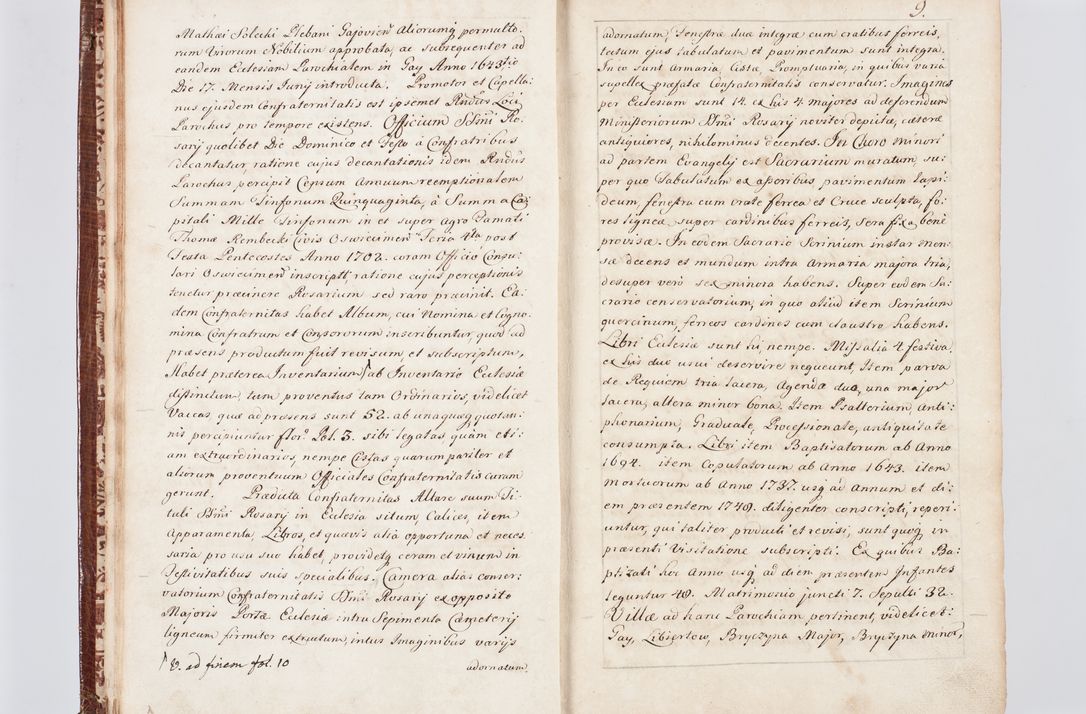 Mathæi Solecki Plebani Gajoviens Aliorumq permulto:
rum Virorum Nobilium approbata, ac subsequenter ad
eandem Ecclesiam Parochialem in Gay Anno 1643tio
Die 17. Mensis Junij introducta. Promotor et Capella:
nus ejusdem Confraternitatis est ipsemet Rndus Loci
Parochus pro tempore existens. Officium SSmi Ro:
sarij quolibet Die Dominico et Festo à Confratribus
decantatur, ratione cujus decantationis idem Rndus
Parochus, percipit Censum Annuum reemptionalem
Summam Tinfonum Quinquaginta, à Summa Ca:
pitali Mille Tinfonum in et super Agro Famati
Thomæ Rembecki Civis Oswiecimen Feria 4ta post
Festa Pentecostes Anno 1702. coram Officio Consu:
lari Oswiecimen inscript, ratione cujus perceptionis
tenetur præcinere Rosarium sed raro præcinit. Ea:
dem Confraternitas habet Album, cui Nomina et Cogno:
mina Confratrum et Consororum inscribuntur, quod ad
præsens productum fuit revisum, et subscriptum,
Habet præterea Inventarium ab Inventario Ecclesiæ
distinctum, tum proventus tam Ordinarios, videlicet
Vaccas, quæ ad præsens sunt 52. ab unaquaq quotan:
nis percipiuntur flor. Pol. 3. sibi legatas, quam eti:
am extraordinarios, nempe Cistas quarum pariter et
aliorum proventuum Officiales Confraternitatis curam
gerunt. Prædicta Confraternitas Altare suum Ti:
tuli SSmi Rosarij in Ecclesia situm, Calices, item
Apparamenta, Libros, et quævis alia opportuna et neces
saria pro usu suo habet, providetq ceram et vinum in
Festivitatibus suis specialibus. Camera alias conser:
vatorium Confraternitatis SSmi Rosarij ex opposito
Majoris Portæ Ecclesiæ intra Sepimenta Cæmeterij
ligneum firmiter extructum, intus Imaginibus varijs
V. ad finem fol. 10
adornatum
9.
adornatum, Fenestræ duæ integræ cum cratibus ferreis,
tectum ejus tabulatum et pavimentum sunt integra.
In eo sunt Armaria, Cistæ, Promptuaria, in quibus varia
supellex præfatæ Confraternitatis conservatur. Imagines
per Ecclesiam sunt 14. ex his 4 majores ad deferendum
Ministeriorum SSmi Rosarij noviter depictæ, cæteræ
antiquiores, nihilominus decentes. In Choro Minori
ad partem Evangelij est Sacrarium muratum, su:
per quo tabulatum ex asseribus pavimentum lapi:
deum, fenestra cum crate ferrea et Cruce sculpta, fo:
res lignea super cardinibus ferreis, sera fixa bene
provisæ. In eodem Sacrario Scrinium instar men:
sæ decens et mundum intra Armaria majora tria,
desuper verò sex minora habens. Super eodem Sa:
crario conservatorium, in quo aliud item Scrinium
quercinum, ferreos cardines cum claustro habens.
Libri Ecclesiæ sunt hi, nempe. Missalia 4 festiva,
ex his duo usui deservire nequeunt, Item parva
de Requiem tria lacera, Agendæ duæ, una major
lacera, altera minor bona. Item Psalterium, Anti:
phonarium, Graduale, Processionale, antiquitate
consumpta. Libri item Baptisatorum ab Anno
1694. item Copulatorum ab Anno 1643. item
Mortuorum ab Anno 1737. usq ad Annum et di:
em præsentem 1748. diligenter conscripti, reperi:
untur, qui taliter producti et revisi, sunt quoq in
præsenti Visitatione subscripti. Ex quibus Ba:
ptizati hoc Anno usq ad diem præsentem Infantes
leguntur 48. Matrimonio juncti 7. Sepulti 32.
Villæ ad hanc Parochiam pertinent, videlicet:
Gay, Libiertow, Bryczyna Major, Bryczyna minor,